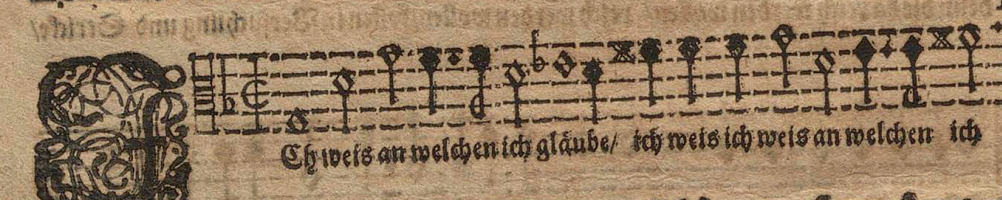 ICh weis an welchen ich gläube/ ich weis ich weis an welchen ich